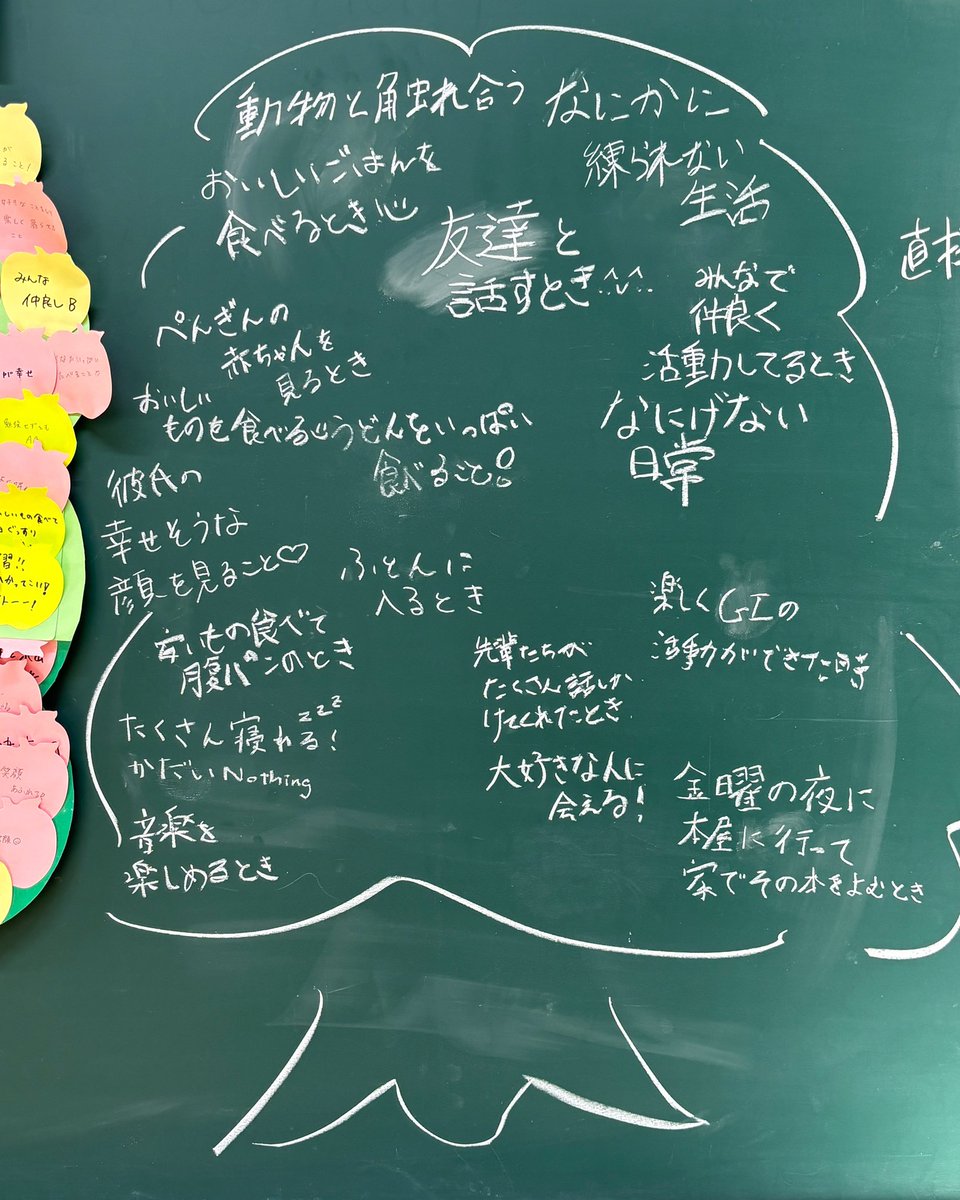 動物と触れ合う
なにかに
練られない
生活
おいしいごはんを
食べるとき
友達と
話すとき
みんなで
仲良く
活動してるとき
ぺんぎんの
赤ちゃんを
見るとき
おいしい
ものを食べる
うどんをいっぱい
食べること!
なにげない
日常
彼氏の
幸せそうな
顔を見ること♡
ふとんに
入るとき
楽しくGIの
活動ができた時
旨いもの食べて
腹パンのとき
先輩たちが
たくさん話しか
けてくれたとき
たくさん寝れる!zzz
かだいNothing
大好きな人に
会える!
金曜の夜に
本屋に行って
家でその本をよむとき
音楽を
楽しめるとき
みんな
仲良し
が幸せ
笑顔